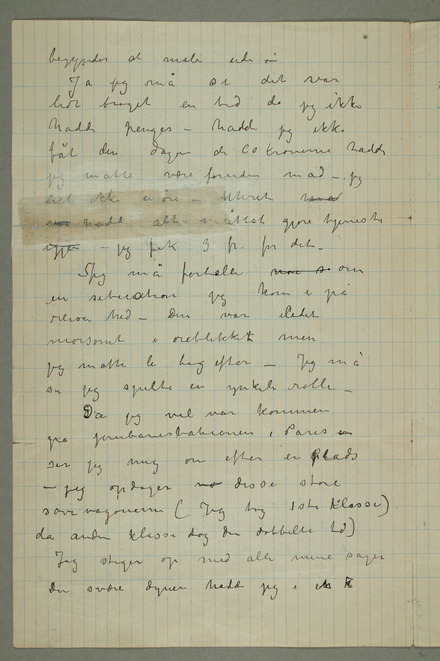 begynder at male ude
Ja jeg må se det var
lidt broget en tid da jeg ikke
hadde penger – hadde jeg ikke
fåt den dagen de 60 kronerne hadde
jeg måtte være foruden mad – jeg
eiet ikke en øre – Uhret
hadde alt måttet gjøre tjeneste
– jeg fik 3 fr. for det.
Jeg må fortelle om
en situation jeg kom i på
reisen hid – Den var ikke
morsomt i øieblikket men
jeg måtte le bag efter – Jeg må
si jeg spilte en ynkelig rolle –
Da jeg vel var kommen
på jernbanestationen i Paris
ser jeg mig om efter en plads
– jeg opdager disse store
sovevagonerne (Jeg tog 1ste klasse)
da anden klasse tog den dobbelte tid)
Jeg stiger op med alle mine sager
den svære dynen hadde jeg i